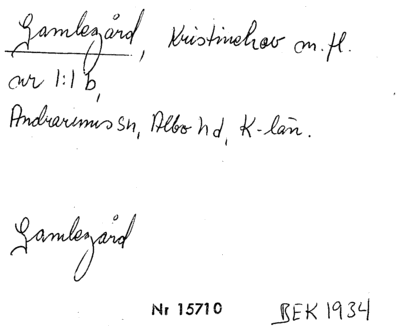 Gamlegård, Kristinehov m.fl.
nr 1:1 b,
Andrarums sn, Albo hd, K-län.
Gamlegård
Nr 15710 BEK 1934